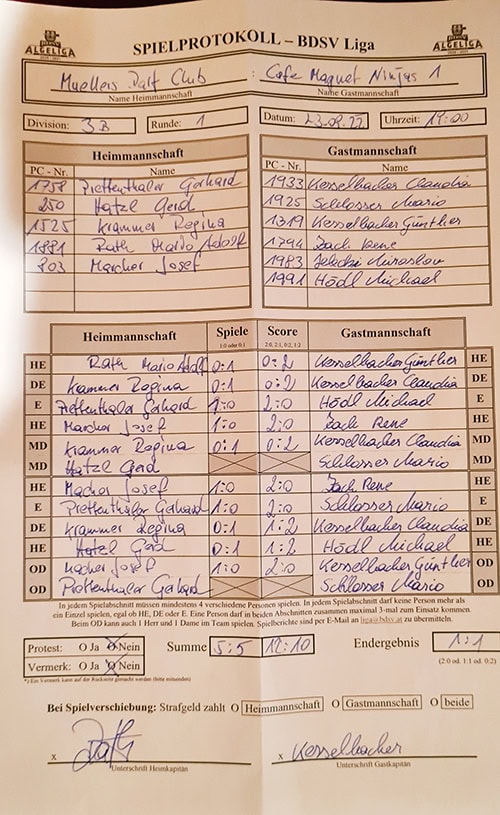 ALGELIGA SPIELPROTOKOLL – BDSV Liga ALGELIGA
Muellers Dart Club : Cafe Magnet Ninjas 1
Name Heimmannschaft Name Gastmannschaft
Division: 3B Runde: 1 Datum: 23.09.22 Uhrzeit: 19:00
Heimmannschaft Gastmannschaft
PC - Nr. Name PC - Nr. Name
1758 Prettenthaler Gerhard 1933 Kesselbacher Claudia
250 Hatzl Gerd 1925 Schlosser Mario
1525 Krammer Regina 1319 Kesselbacher Günther
1881 Rath Mario Adolf 1794 Zach Rene
203 Marcher Josef 1983 Miroslav
1991 Hödl Michael
Heimmannschaft Spiele Score Gastmannschaft
1:0 oder 0:1 2:0, 2:1, 0:2, 1:2
HE Rath Mario Adolf 0:1 0:2 Kesselbacher Günther HE
DE Krammer Regina 0:1 0:2 Kesselbacher Claudia DE
E Prettenthaler Gerhard 1:0 2:0 Hödl Michael E
HE Marcher Josef 1:0 2:0 Zach Rene HE
MD Krammer Regina 0:1 0:2 Kesselbacher Claudia MD
MD Hatzl Gerd Schlosser Mario MD
HE Marcher Josef 1:0 2:0 Zach Rene HE
E Prettenthaler Gerhard 1:0 2:0 Schlosser Mario E
DE Krammer Regina 0:1 1:2 Kesselbacher Claudia DE
HE Hatzl Gerd 0:1 1:2 Hödl Michael HE
OD Marcher Josef 1:0 2:0 Kesselbacher Günther OD
OD Prettenthaler Gerhard Schlosser Mario OD
In jedem Spielabschnitt müssen mindestens 4 verschiedene Personen spielen. In jedem Spielabschnitt darf keine Person mehr als
ein Einzel spielen, egal ob HE, DE oder E. Eine Person darf in beiden Abschnitten zusammen maximal 3-mal zum Einsatz kommen.
Beim OD kann auch 1 Herr und 1 Dame im Team spielen. Spielberichte sind per E-Mail an liga@bdsv.at zu übermitteln.
Protest: O Ja O Nein Summe 5:5 12:10 Endergebnis 1:1
Vermerk: O Ja O Nein (2:0 od. 1:1 od. 0:2)
*) Ein Vermerk kann auf der Rückseite gemacht werden (bitte mitsenden)
Bei Spielverschiebung: Strafgeld zahlt O Heimmannschaft O Gastmannschaft O beide
x Rath x Kesselbacher
Unterschrift Heimkapitän Unterschrift Gastkapitän